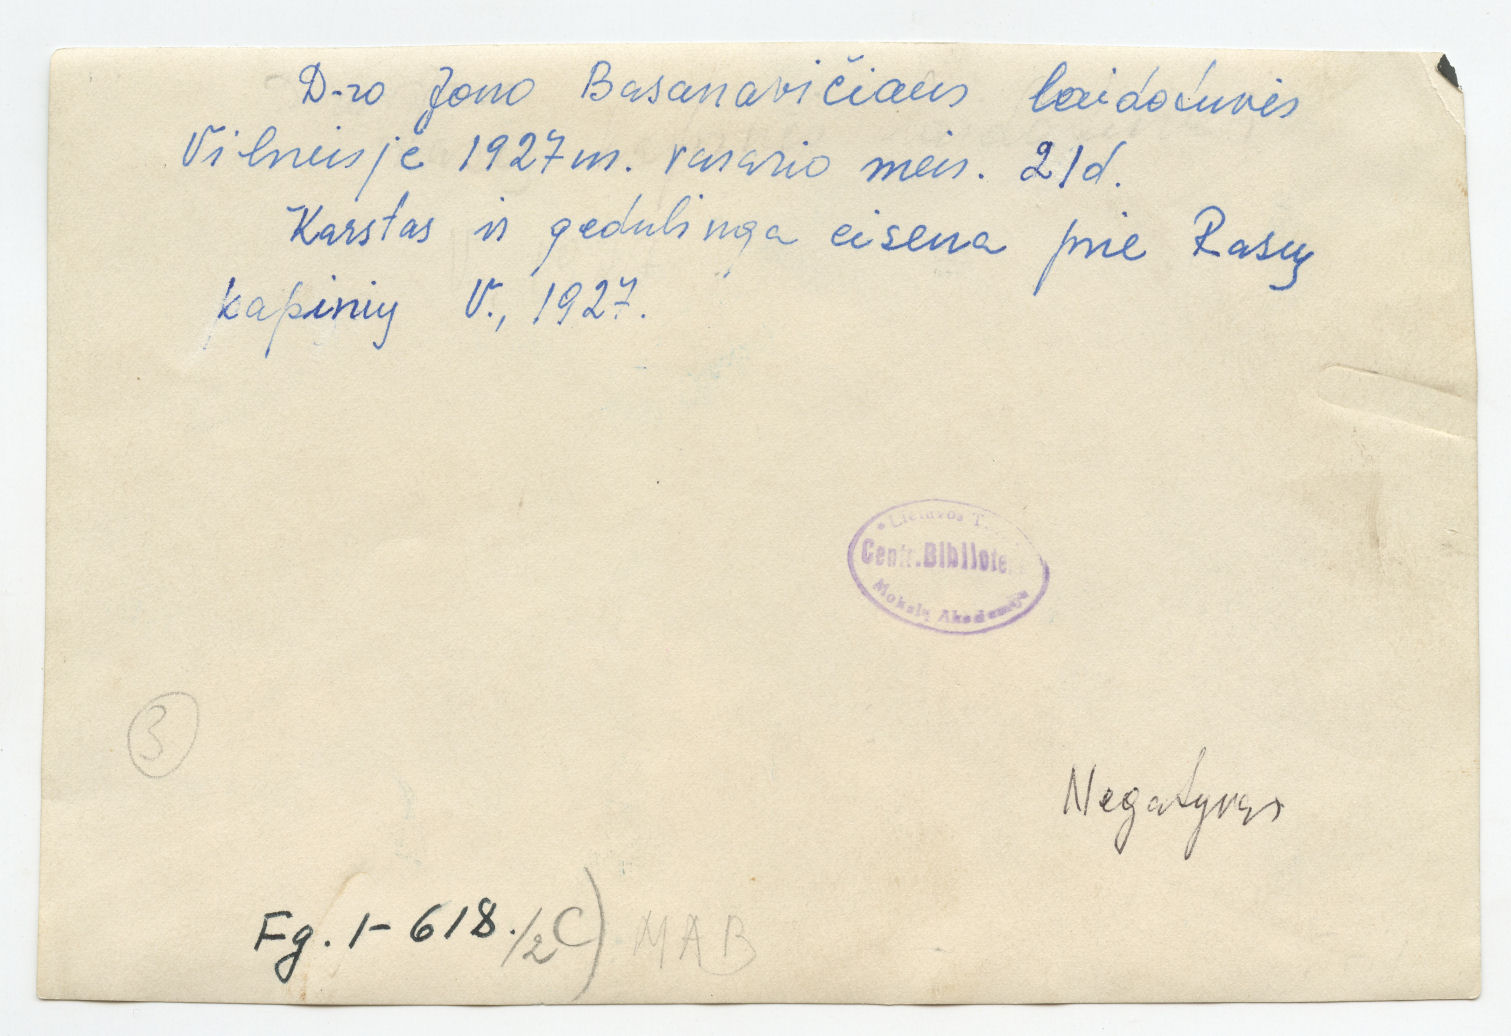 D-ro Jono Basanavičiaus laidotuvės
Vilniuje 1927 m. vasario mėn. 21 d.
Karstas ir gedulinga eisena prie Rasų
kapinių V., 1927.
Lietuvos T.
Centr. Bibliote
Mokslų Akademija
3
Negatyvas
Fg. 1-618./2 C) MAB